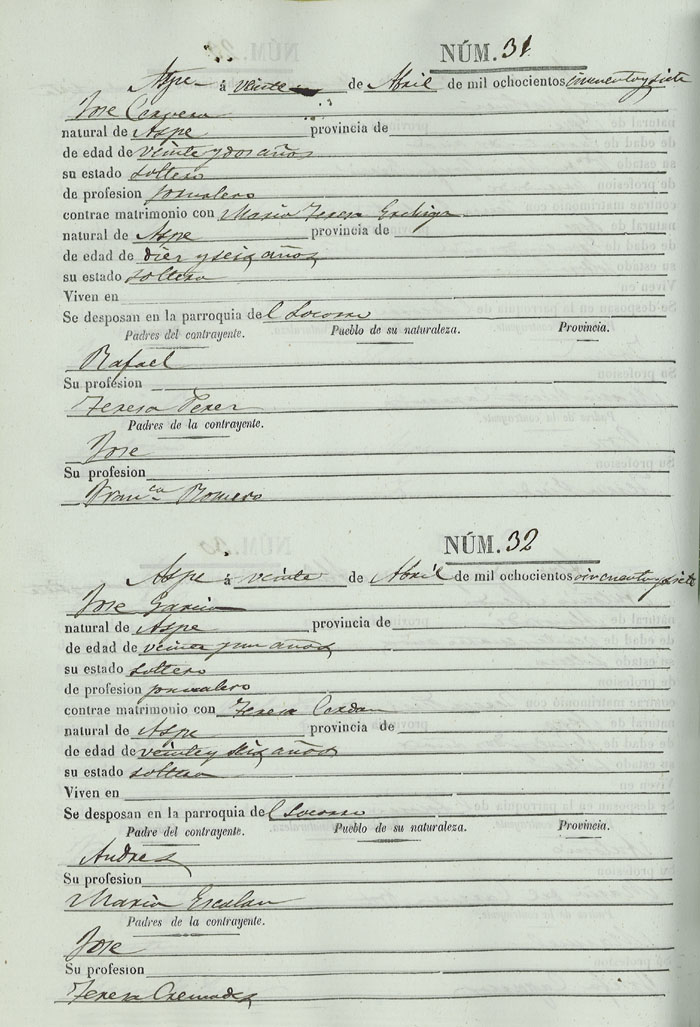 NÚM. 31
Aspe á veinte de Abril de mil ochocientos cincuenta y siete
Jose Cervera
natural de Aspe provincia de
de edad de veinte y dos años
su estado soltero
de profesion jornalero
contrae matrimonio con Maria Teresa
natural de Aspe provincia de
de edad de diez y seis años
su estado soltera
Viven en
Se desposan en la parroquia del Socorro
Padres del contrayente. Pueblo de su naturaleza. Provincia.
Rafael
Su profesion
Teresa Perez
Padres de la contrayente.
Jose
Su profesion
Fran.ca Romero
NÚM. 32
Aspe á veinte de Abril de mil ochocientos cincuenta y siete
Jose Garcia
natural de Aspe provincia de
de edad de veinte y un años
su estado soltero
de profesion jornalero
contrae matrimonio con Teresa Cerdan
natural de Aspe provincia de
de edad de veinte y seis años
su estado soltera
Viven en
Se desposan en la parroquia del Socorro
Padre del contrayente. Pueblo de su naturaleza. Provincia.
Andres
Su profesion
Maria Escolan
Padres de la contrayente.
Jose
Su profesion
Teresa Cremades